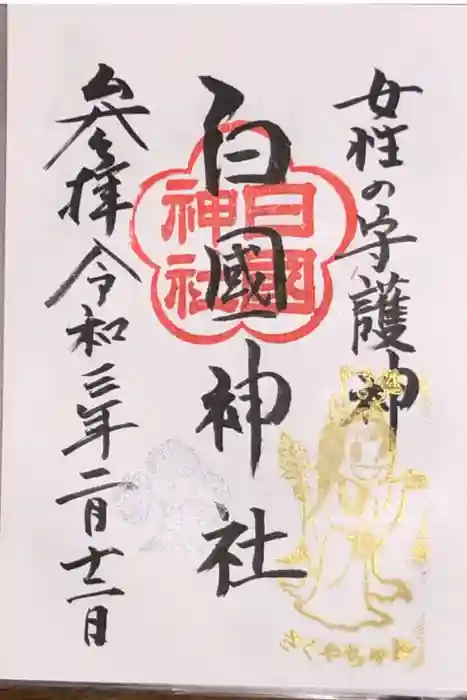 女性の守護神
白國神社
白國
神社
参拝 令和三年二月十二日
さくやちゃん